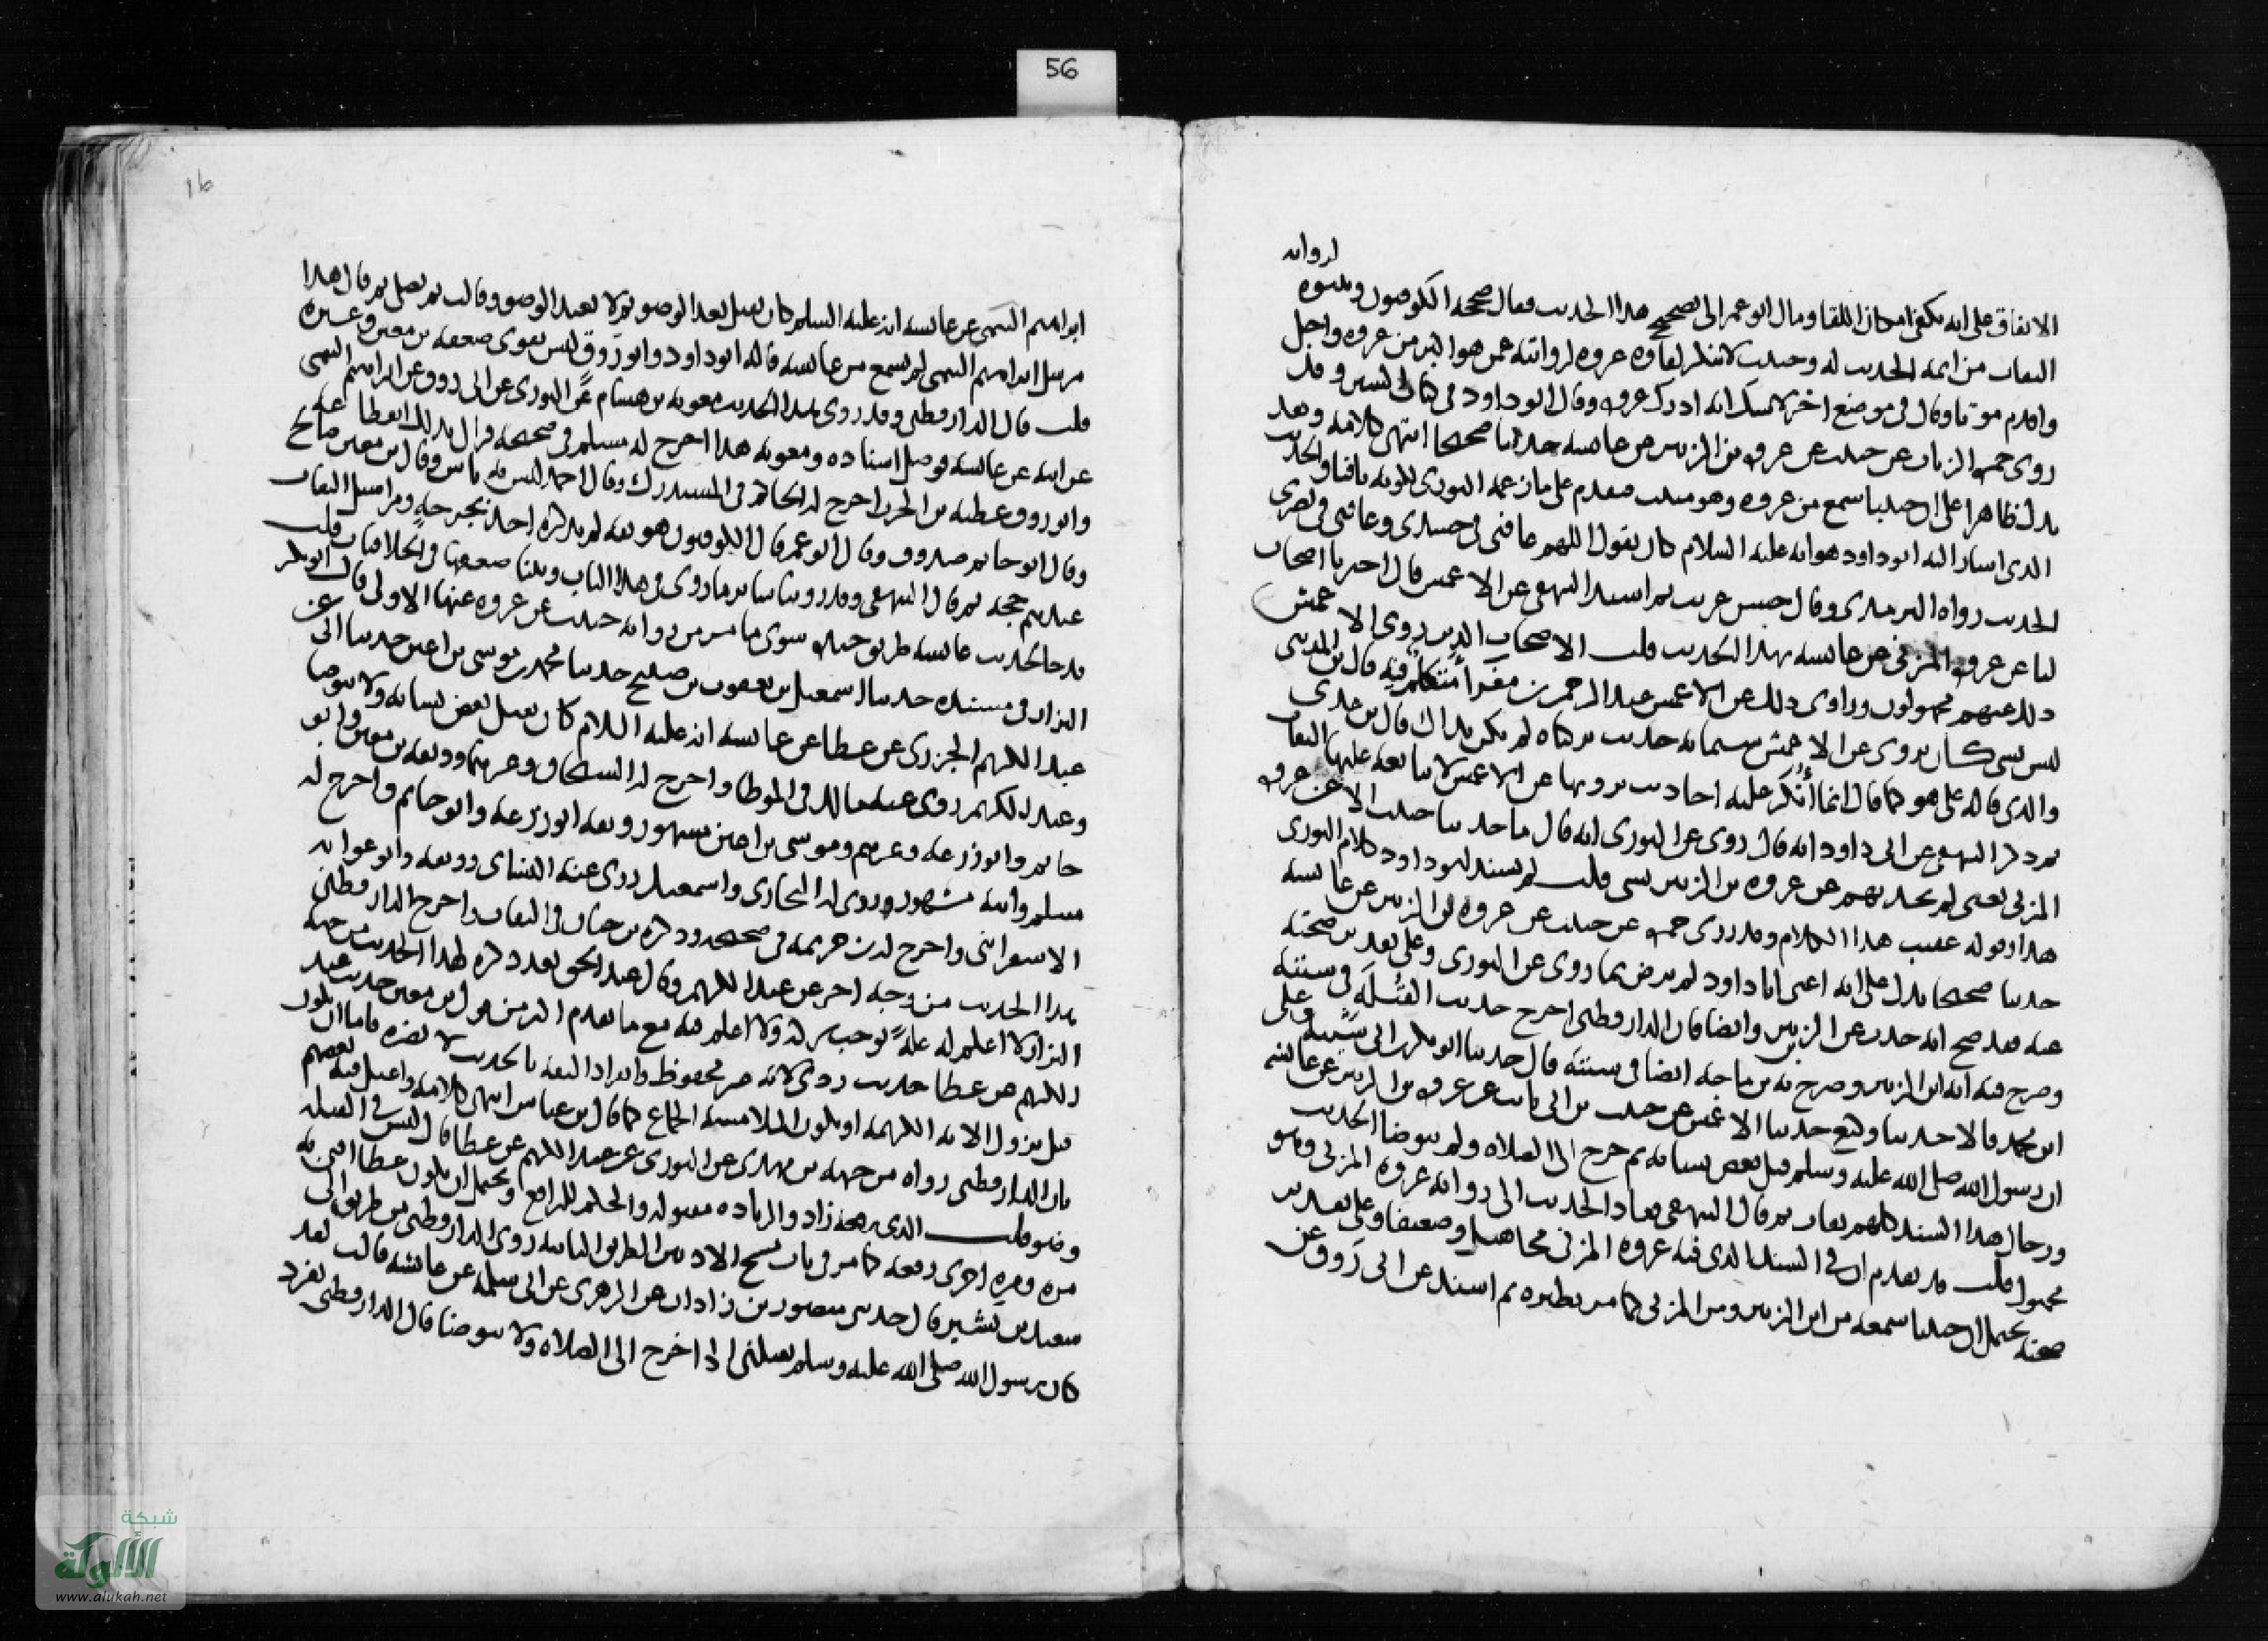 56
لروانه
الاتفاق على انه يكفى امكان اللقا ومال ابو عمر الى تصحيح هذا الحديث فقال صححه الكوفيون وثبتوه
الثقات من ائمة الحديث له وحبيب لا ينكر لقاوه عروة لروايته عمن هو اكبر من عروة واجل
واقدم موتا وقال فى موضع اخر لا شك انه ادرك عروة وقال ابو داود فى كتاب السنن وقد
روى حمزة الزيات عن حبيب عن عروة بن الزبير عن عائشة حديثا صحيحا انتهى كلامه وهذا
يدل ظاهرا على ان حبيبا سمع من عروة وهو مثبت فيقدم على ما زعمه الثورى لكونه نافيا والحديث
الذى اشار اليه ابو داود هو انه عليه السلام كان يقول اللهم عافنى فى جسدى وعافنى فى بصرى
الحديث رواه الترمذى وقال حسن غريب ثم اسند البيهقى عن الاعمش قال اخبرنا اصحاب
لنا عن عروة المزنى عن عائشة بهذا الحديث قلت الاصحاب الذين روى الاعمش
ذلك عنهم مجهولون وراوى ذلك عن الاعمش عبد الرحمن بن مغرا متكلم فيه قال بن المدينى
ليس بشى كان يروى عن الاعمش ستمائة حديث تركناه لم يكن بذاك قال بن عدى
والذى قاله على هو كما قال انما أنكر عليه احاديث يرويها عن الاعمش لا يتابعه عليها الثقات
ثم ذكر البيهقى عن ابى داود انه قال روى عن الثورى انه قال ما حدثنا حبيب الا عن عروة
المزنى يعنى لم يحدثهم عن عروة بن الزبير بشى قلت لم يسند ابو داود كلام الثورى
هذا وقوله عقيب هذا الكلام وقد روى حمزة عن حبيب عن عروة بن الزبير عن عائشة
حديثا صحيحا يدل على انه اعنى ابا داود لم يرض بما روى عن الثورى وعلى تقدير صحته
عنه فقد صح انه حدث عن ابن الزبير وايضا فان الدارقطنى اخرج حديث القبلة فى سننه
وصرح فيه انه ابن الزبير وصرح به بن ماجه ايضا فى سننه قال حدثنا ابو بكر بن ابى شيبة وعلى
ابن محمد قالا حدثنا وكيع حدثنا الاعمش عن حبيب بن ابى ثابت عن عروة بن الزبير عن عائشة
ان رسول الله صلى الله عليه وسلم قبل بعض نسائه ثم خرج الى الصلاة ولم يتوضا الحديث
ورجال هذا السند كلهم ثقات ثم قال البيهقى فعاد الحديث الى رواية عروة المزنى وهو
مجهول قلت قد تقدم ان فى السند الذى فيه عروة المزنى مجاهيل وضعيفا وعلى تقدير
صحته يحتمل ان حبيبا سمعه من ابن الزبير ومن المزنى كما مر نظيره ثم اسند عن ابى رَوق عن
16
ابراهيم التيمى عن عائشة انه عليه السلم كان يقبل بعد الوضو ثم لا يعيد الوضو وقالت ثم يصلى ثم قال هذا
مرسل ابراهيم التيمى لم يسمع من عائشة قاله ابو داود وابو رَوق ليس بقوى ضعفه بن معين وغيره
قلت قال الدارقطنى وقد روى هذا الحديث معوية بن هشام عن الثورى عن ابى روق عن ابراهيم التيمى
عن ابيه عن عائشة فوصل اسناده ومعوية هذا اخرج له مسلم فى صحيحه فزال بذلك انقطاعه
وابو روق عطية بن الحرث اخرج له الحاكم فى المستدرك وقال احمد ليس به باس وقال بن معين صالح
وقال ابو حاتم صدوق وقال ابو عمر قال الكوفيون هو ثقة لم يذكره احد بجرحة ومراسيل الثقات
عندهم حجة ثم قال البيهقى وقد روينا سائر ما روى فى هذا الباب وبينا ضعفها فى الخلافيات قلت
قد جا لحديث عائشة طرق جيدة سوى ما مر من رواية حبيب عن عروة عنها الاولى قال ابو بكر
البزار فى مسنده حدثنا اسمعيل بن يعقوب بن صبيح حدثنا محمد بن موسى بن اعين حدثنا ابى عن
عبد الكريم الجزرى عن عطا عن عائشة انه عليه السلام كان يقبل بعض نسائه ولا يتوضا
وعبد الكريم روى عنه مالك فى الموطا واخرج له الشيخان وغيرهما ووثقه بن معين وابو
حاتم وابو زرعة وغيرهم وموسى بن اعين مشهور وثقه ابو زرعة وابو حاتم واخرج له
مسلم وابنه مشهور وروى له البخارى واسمعيل روى عنه النسائى ووثقه وابو عوانة
الاسفراينى واخرج له بن خزيمة فى صحيحه وذكره بن حبان فى الثقات واخرج الدارقطنى
هذا الحديث من وجه اخر عن عبد الكريم وقال عبد الحق بعد ذكره لهذا الحديث من جهة
البزار لا اعلم له علة توجب تركه ولا اعلم فيه مع ما تقدم اكثر من قول بن معين حديث عبد
الكريم عن عطا حديث ردى لانه غير محفوظ وانفراد الثقة بالحديث لا يضره فاما ان يكون
قبل نزول الاية الكريمة او يكون الملامسة الجماع كما قال بن عباس انتهى كلامه واعل فيه بعضهم
بان الدارقطنى رواه من جهة بن مهدى عن الثورى عن عبد الكريم عن عطا قال ليس فى القبلة
وضو قلت الذى رفعه زاد والزيادة مقبولة والحكم للرافع ويحتمل ان يكون عطا افتى به
مرة ومرة اخرى رفعه كما مر فى باب مسح الاذنين الطريق الثانية روى الدارقطنى من طريق
سعيد بن بشير قال حدثنى منصور بن زاذان عن الزهرى عن ابى سلمة عن عائشة قالت لقد
كان رسول الله صلى الله عليه وسلم يقبلنى اذا خرج الى الصلاة ولا يتوضا قال الدارقطنى تفرد
شبكة
الألوكة
www.alukah.net